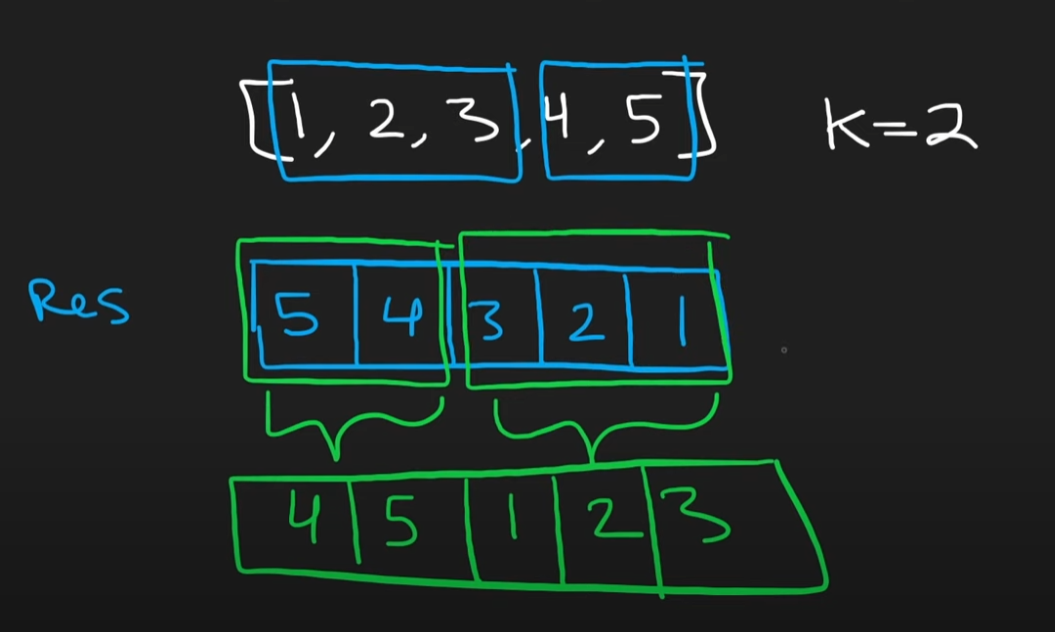 [1, 2, 3, 4, 5] K=2
Res 5 4 3 2 1
4 5 1 2 3